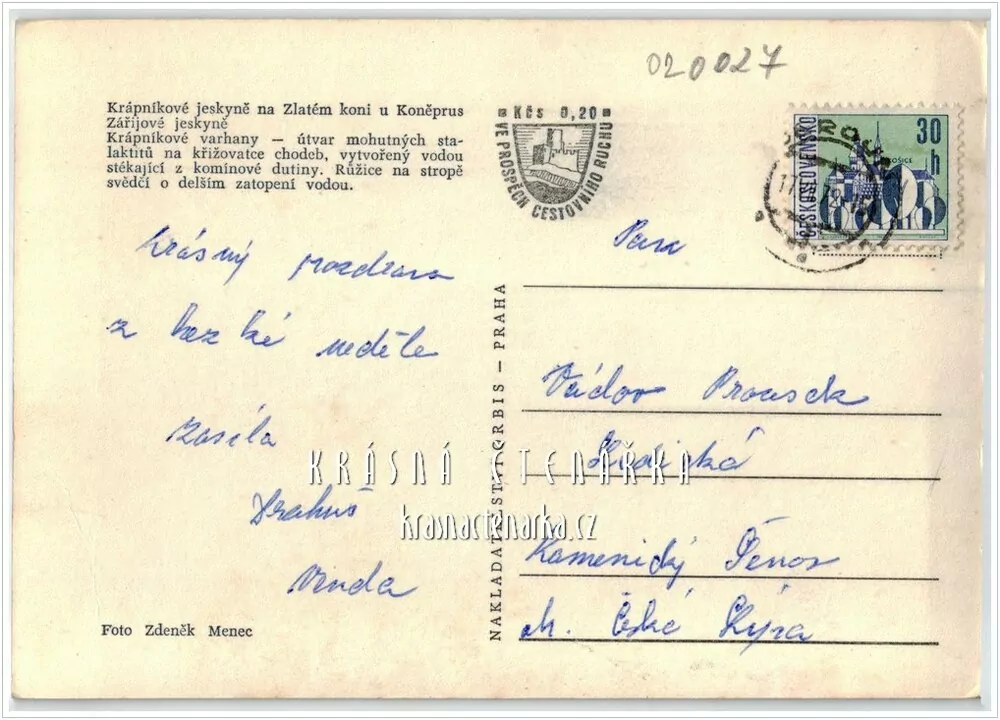 020027
Krápníkové jeskyně na Zlatém koni u Koněprus
Zářijové jeskyně
Krápníkové varhany — útvar mohutných sta-
laktitů na křižovatce chodeb, vytvořený vodou
stékající z komínové dutiny. Růžice na stropě
svědčí o delším zatopení vodou.
Kčs 0,20
VE PROSPĚCH CESTOVNÍHO RUCHU
ČESKOSLOVENSKO
30
h
Krásný pozdrav
z hezké neděle
zasílá
Drahuš
Vinda
Pan
Václav Prousek
Kamenický Šenov
ok. Česká Lípa
NAKLADATELSTVÍ ORBIS — PRAHA
KRÁSNÁ ČTENÁŘKA
krasnactenarka.cz
Foto Zdeněk Menec